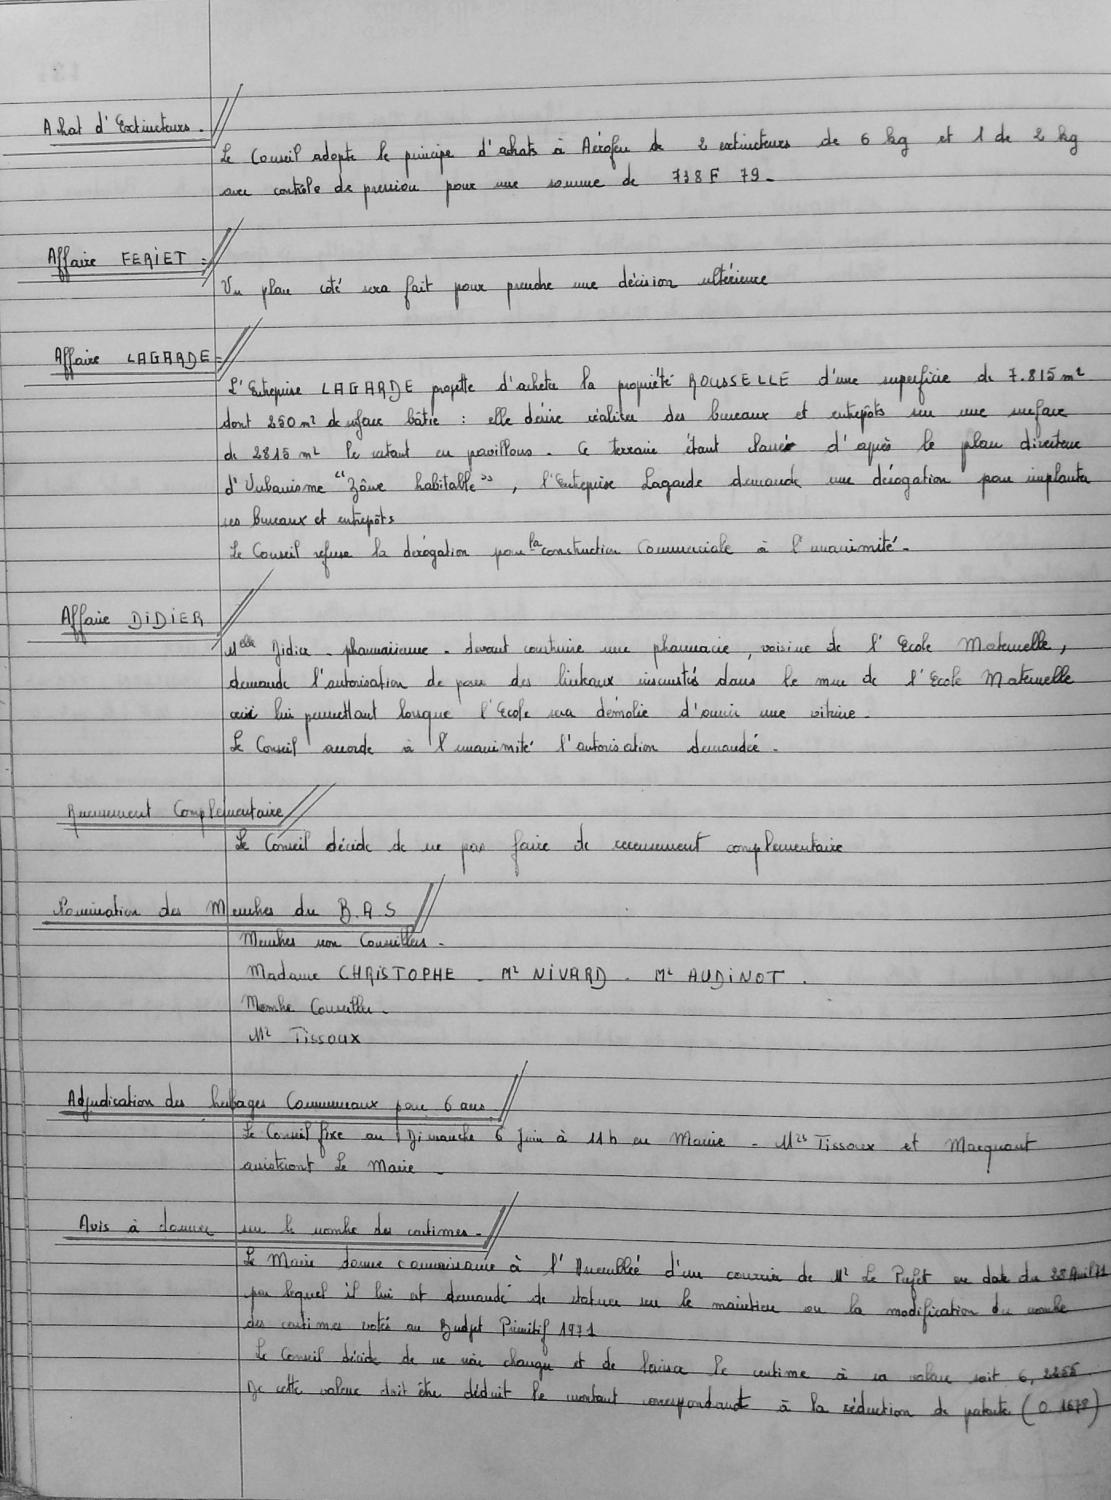 Achat d'Extincteurs.
Le Conseil adopte le principe d'achats à Aérofeu de 2 extincteurs de 6 kg et 1 de 2 kg
avec contrôle de pression pour une somme de 738 F 79.
Affaire FERIET :
Un plan coté sera fait pour prendre une décision ultérieure
Affaire LAGARDE :
L'Entreprise LAGARDE projette d'acheter la propriété ROUSSELLE d'une superficie de 7.815 m²
dont 250 m² de surface bâtie : elle désire réaliser des bureaux et entrepôts sur une surface
de 2815 m² le restant en pavillons. Ce terrain étant classé d'après le plan directeur
d'Urbanisme "Zône habitable", l'Entreprise Lagarde demande une dérogation pour implanter
ses bureaux et entrepôts
Le Conseil refuse la dérogation pour la construction Commerciale à l'unanimité.
Affaire DIDIER
Melle Didier - pharmacienne - devant construire une pharmacie, voisine de l'Ecole Maternelle,
demande l'autorisation de poser des linteaux incrustés dans le mur de l'Ecole Maternelle
ceci lui permettant lorsque l'Ecole sera démolie d'ouvrir une vitrine.
Le Conseil accorde à l'unanimité l'autorisation demandée.
Recensement Complémentaire
Le Conseil décide de ne pas faire de recensement complementaire
Nomination des Membres du B.A.S
Membres non Conseillers.
Madame CHRISTOPHE - Mr NIVARD - Mr AUDINOT.
Membre Conseiller.
Mr Tissoux
Adjudication des herbages Communaux pour 6 ans.
Le Conseil fixe au Dimanche 6 Juin à 11h en Mairie - Mrs Tissoux et Macquart
assisteront Le Maire.
Avis à donner sur le nombre des centimes.
Le Maire donne connaissance à l'Assemblée d'un courrier de Mr Le Préfet en date du 28 Avril 71
par lequel il lui est demandé de statuer sur le maintien ou la modification du nombre
des centimes votés au Budget Primitif 1971
Le Conseil décide de ne rien changer et de laisser le centime à sa valeur soit 6,
De cette valeur doit être déduit le montant correspondant à la réduction de patente (0.1678)